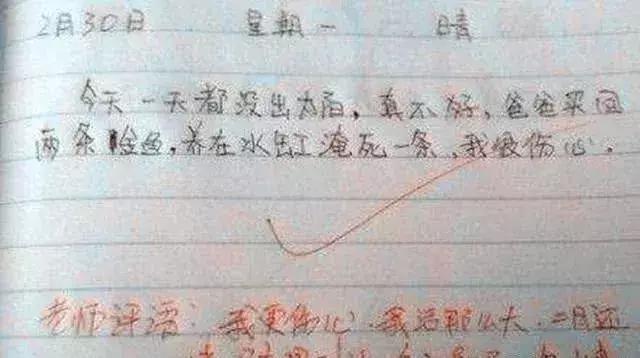 2月30日 星期一 晴
今天一天都没出太阳,真不好,爸爸买回
两条金鱼,养在水缸淹死一条,我很伤心。
老师评语:我更伤心.我活那么大,二月还